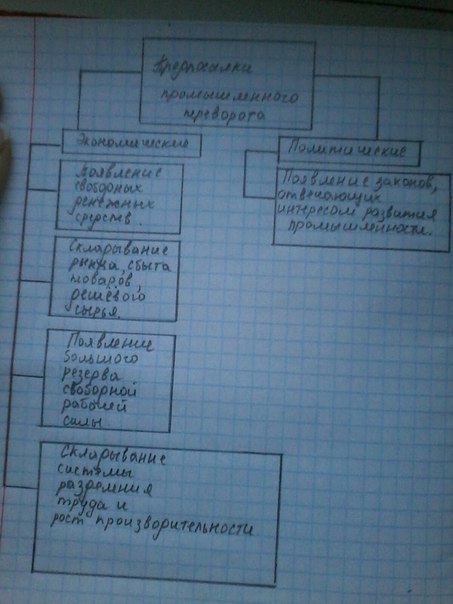 Предпосылки
промышленного
переворота
Экономические
Политические
Появление
свободных
денежных
средств.
Появление законов,
отвечающих
интересом развития
промышлености.
Складывание
рынка, сбыта
товаров,
дешёвого
сырья.
Появление
большого
резерва
свободной
рабочей
силы
Складывание
системы
разделения
труда и
рост производительности